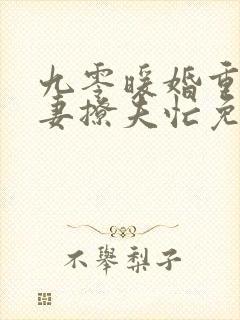 九零暖婚重
妻撩夫忙免
不举梨子